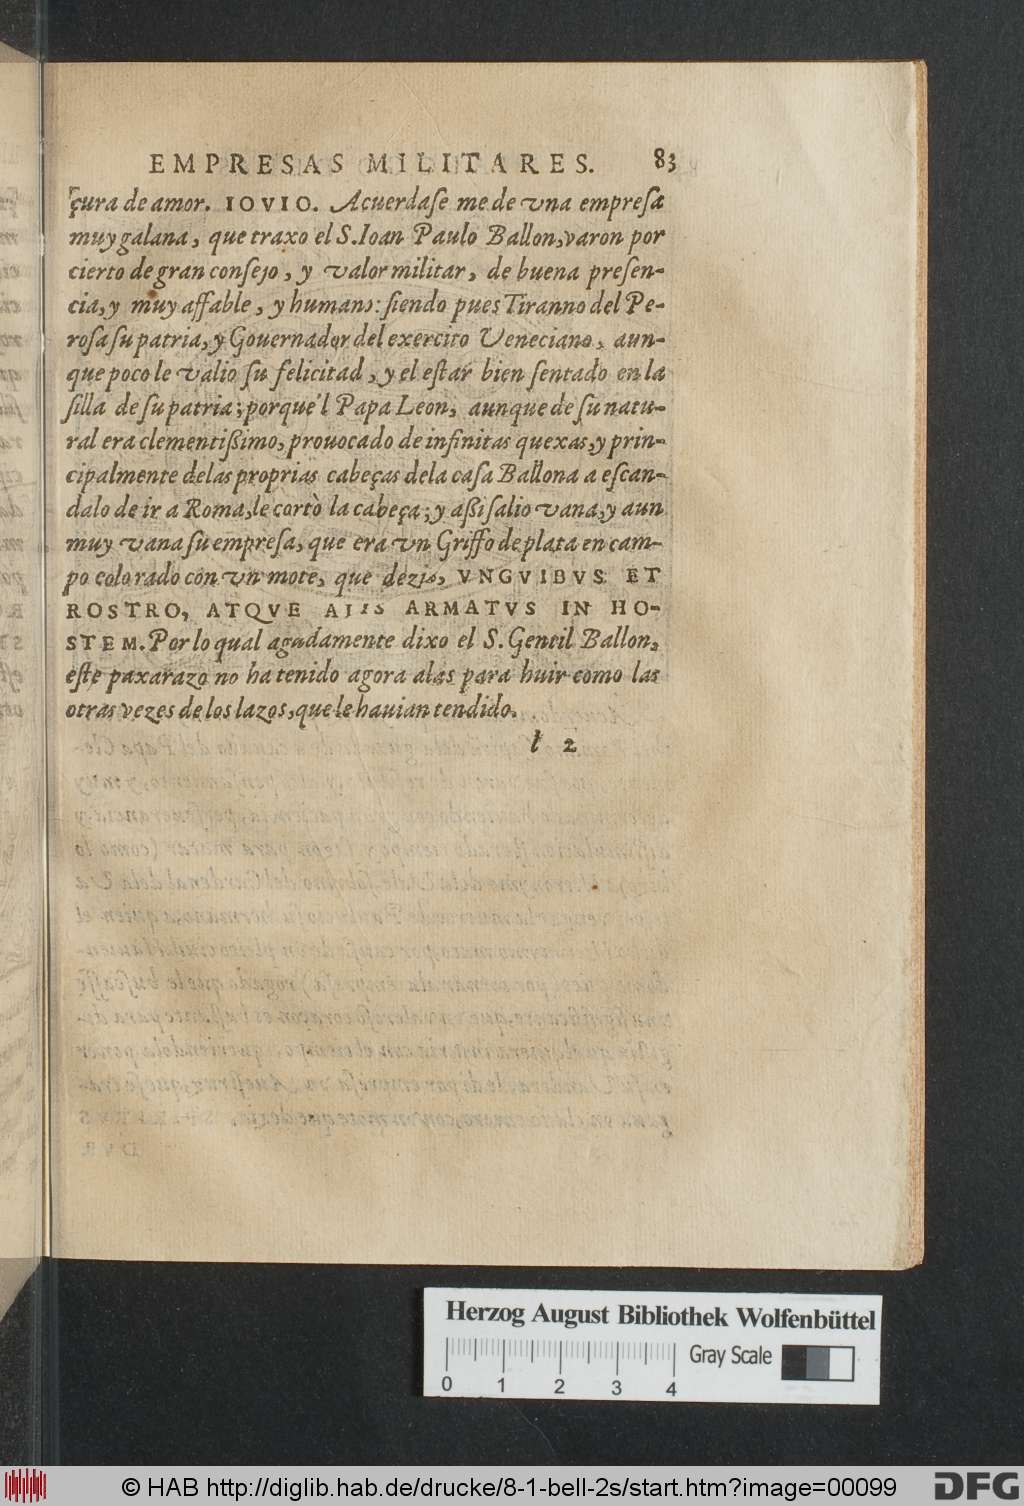 EMPRESAS MILITARES. 83
çura de amor. IOVIO. Acuerdaſe me de vna empreſa
muy galana, que traxo el S. Ioan Paulo Ballon, varon por
cierto de gran conſejo, y valor militar, de buena preſen-
cia, y muy affable, y humano: ſiendo pues Tiranno del Pe-
roſa ſu patria, y Gouernador del exercito Veneciano, aun-
que poco le valio ſu felicitad, y el eſtar bien ſentado en la
ſilla de ſu patria; porque'l Papa Leon, aunque de ſu natu-
ral era clementißimo, prouocado de infinitas quexas, y prin-
cipalmente delas proprias cabeças dela caſa Ballona a eſcan-
dalo de ir a Roma, le cortò la cabeça; y aßi ſalio vana, y aun
muy vana ſu empreſa, que era vn Griffo de plata en cam-
po colorado con vn mote, que dezia, VNGVIBVS ET
ROSTRO, ATQVE ALIS ARMATVS IN HO-
STEM. Por lo qual agudamente dixo el S. Gentil Ballon,
eſte paxarazo no ha tenido agora alas para huir como las
otras vezes de los lazos, que le hauian tendido.
l 2
Herzog August Bibliothek Wolfenbüttel
Gray Scale
0 1 2 3 4
© HAB http://diglib.hab.de/drucke/8-1-bell-2s/start.htm?image=00099
DFG